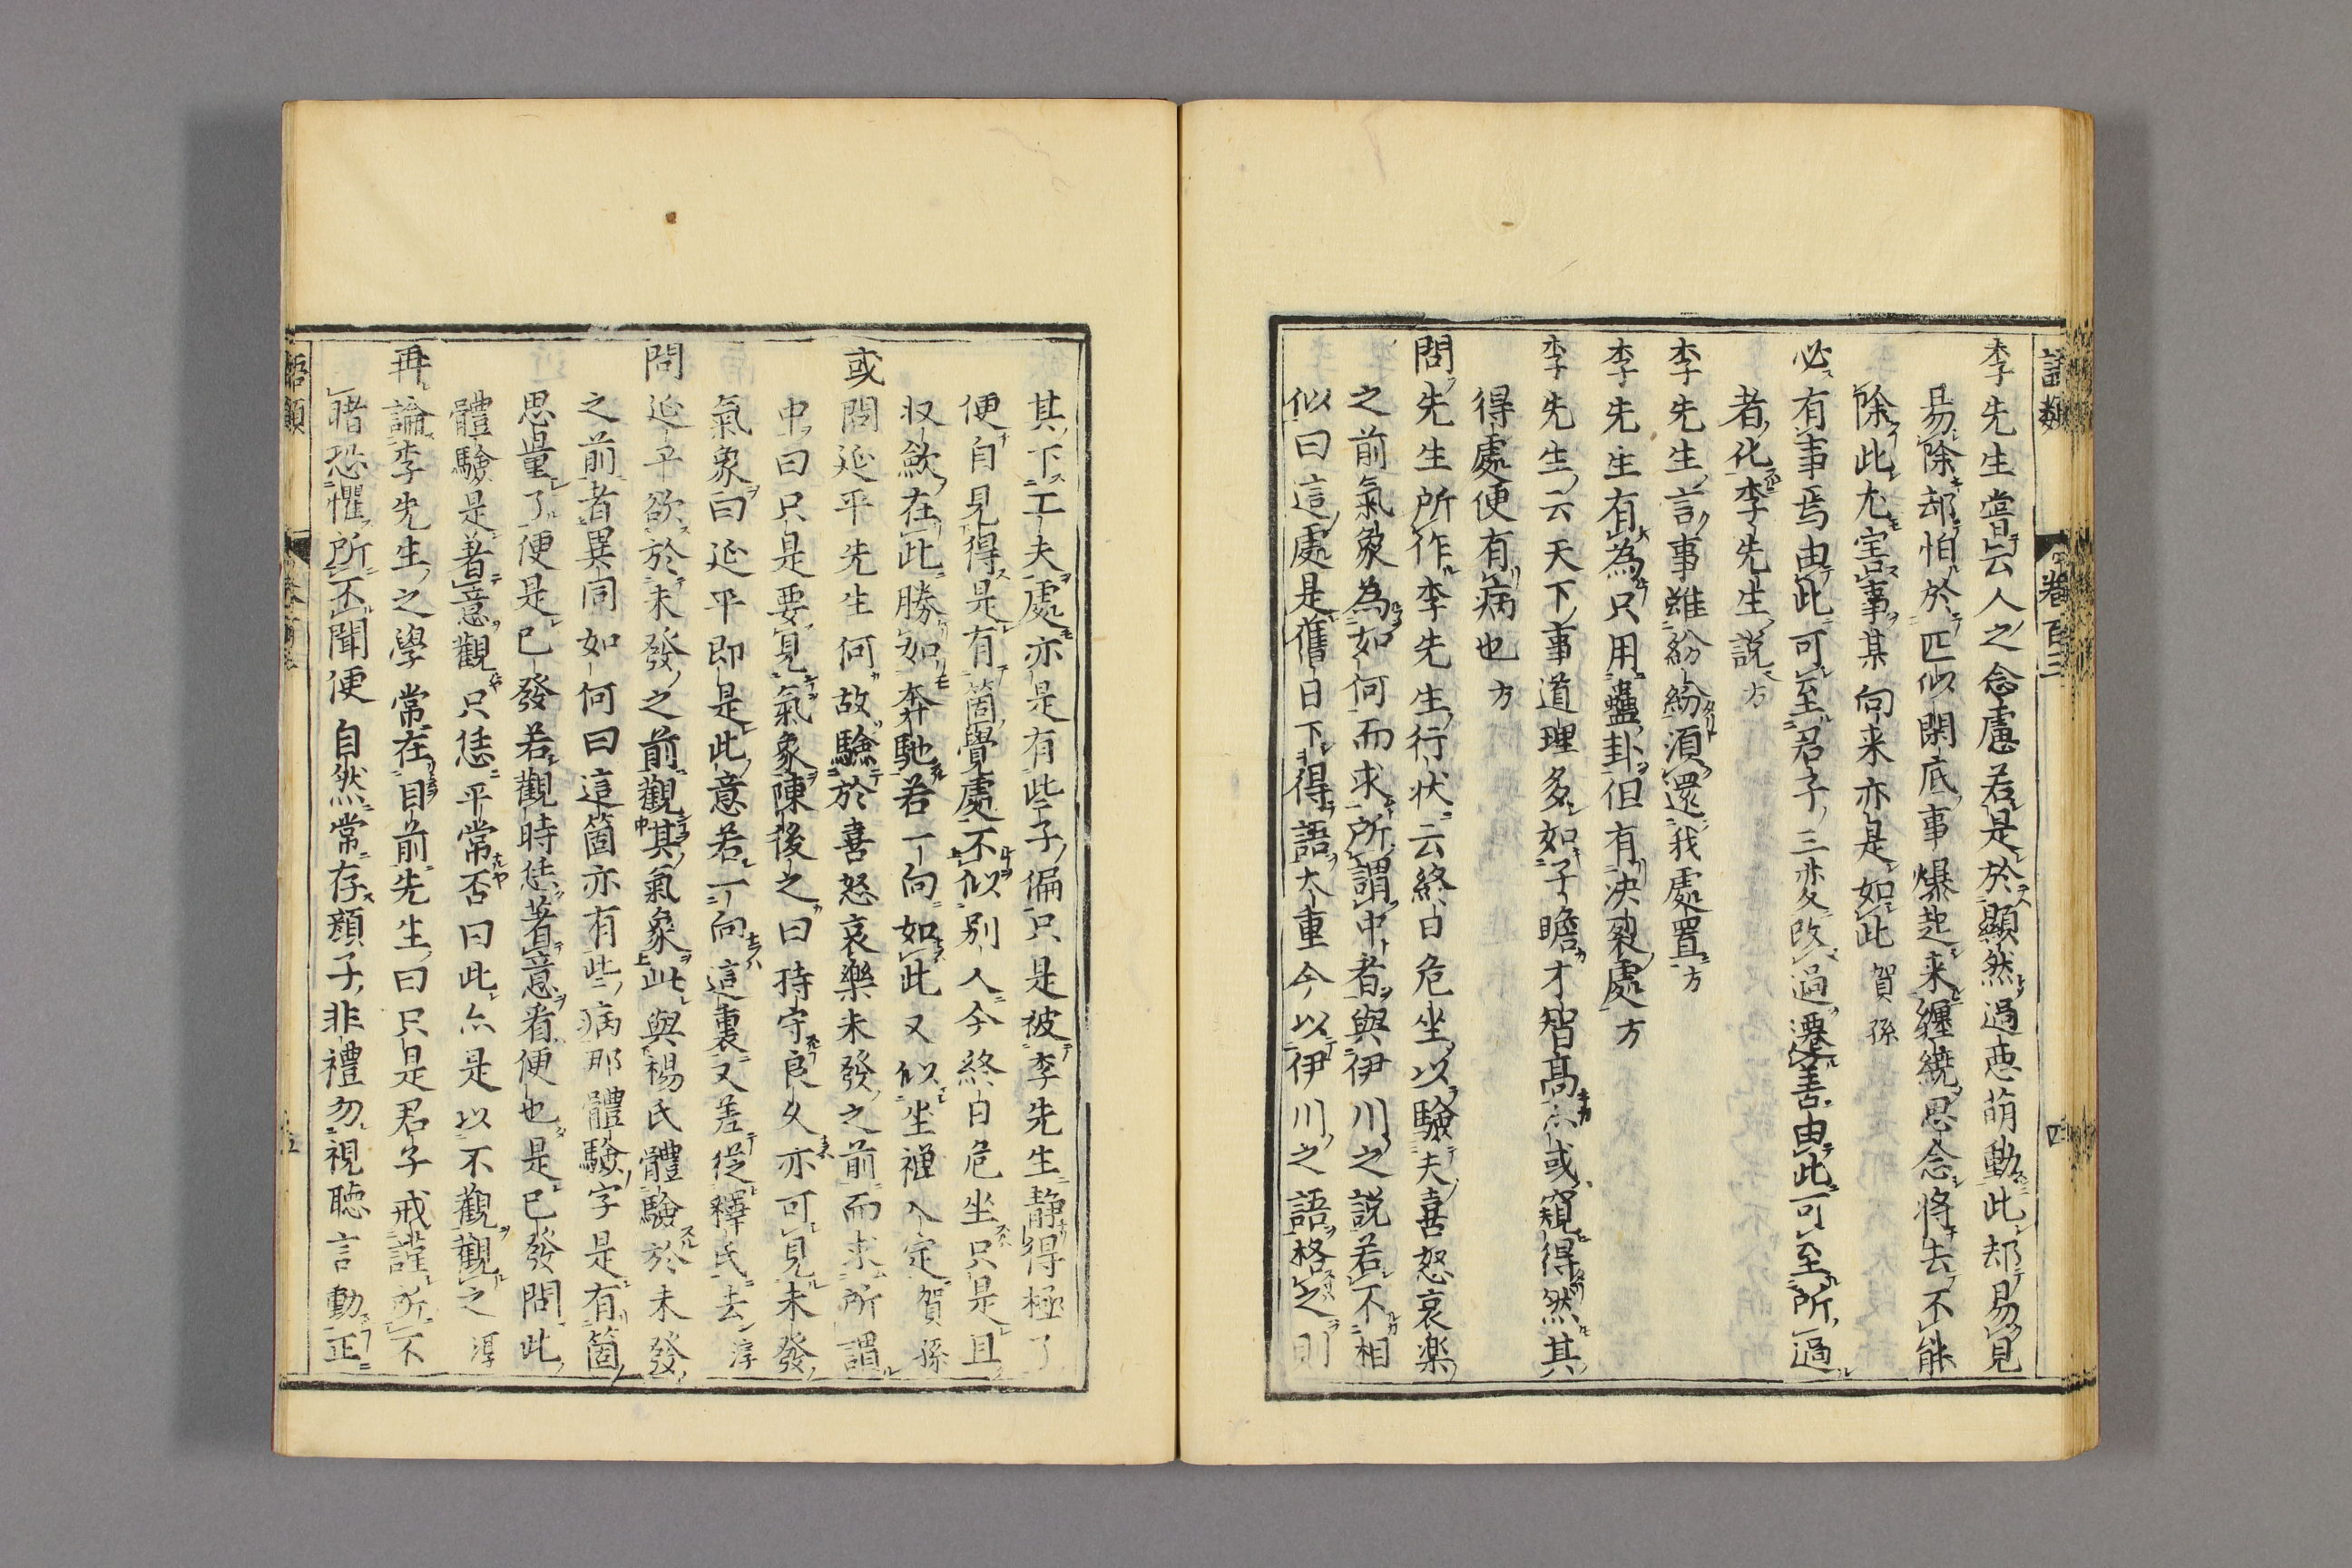 語類 卷百三 四
李先生嘗云人之念慮若是於顯然過惡萌動此却易見
易除却怕於匹似閑底事爆起来纏繞思念將去不能
除此尤害事某向来亦是如此 賀孫
必有事焉由此可至君子三変改過遷善由此可至所過
者化李先生說 方
李先生言事雖紛紛須還我處置 方
李先生有為只用蠱卦但有决裂處 方
李先生云天下事道理多如子瞻才智高亦或窺得然其
得處便有病也 方
問先生所作李先生行状云終日危坐以驗夫喜怒哀楽
之前氣象為如何而求所謂中者與伊川之説若不相
似曰這處是舊日下得語太重今以伊川之語格之則
其下工夫處亦是有些子偏只是被李先生静得極了
便自見得是有箇覺處不似別人今終日危坐只是且
収斂在此勝如奔馳若一向如此又似坐禪入定 賀孫
或問延平先生何故驗於喜怒哀樂未發之前而求所謂
中曰只是要見氣象陳後之曰持守良久亦可見未發
氣象曰延平即是此意若一向這裏又差從釋氏去 淳
問延平欲於未發之前觀其氣象此與楊氏體驗於未發
之前者異同如何曰這箇亦有些病那體驗字是有箇
思量了便是已發若觀時恁著意看便也是已發問此
體驗是著意觀只恁平常否曰此亦是以不觀觀之 淳
再論李先生之學常在目前先生曰只是君子戒謹所不
睹恐懼所不聞便自然常存顔子非禮勿視聴言動正
語類